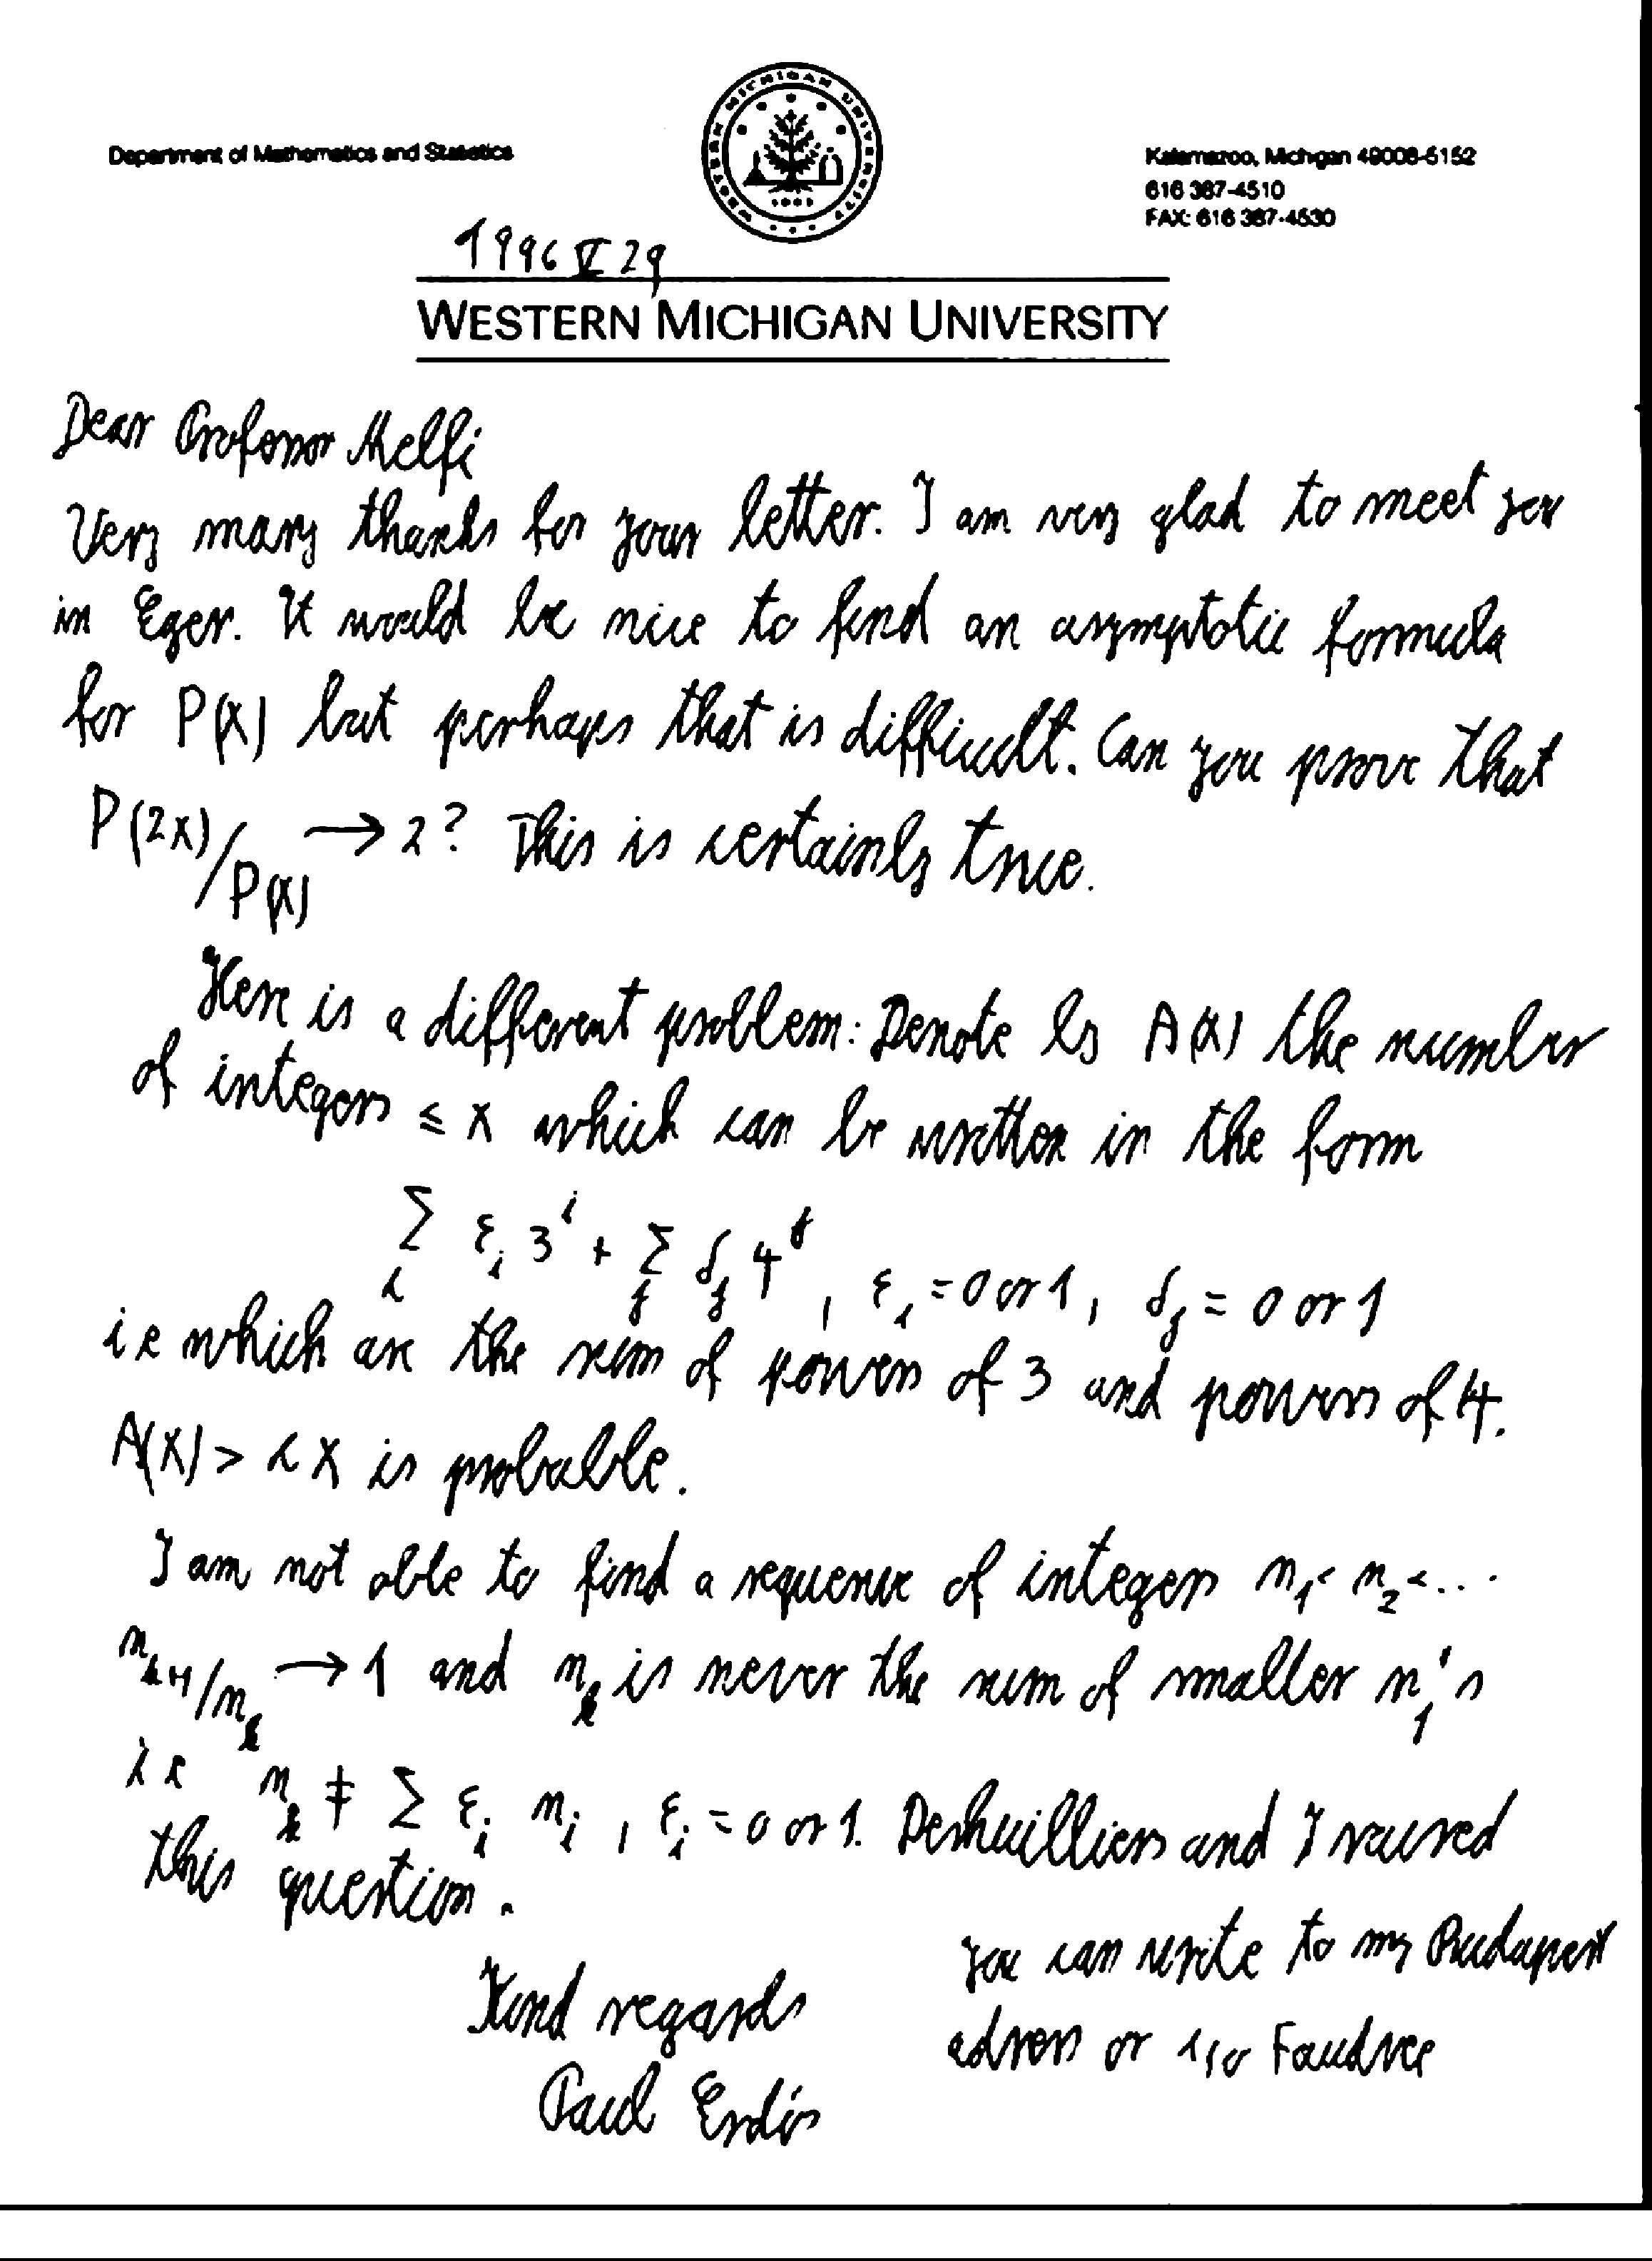 Department of Mathematics and Statistics
WESTERN MICHIGAN UNIVERSITY
Kalamazoo, Michigan 49008-5152
616 387-4510
FAX: 616 387-4530
1996 V 29
WESTERN MICHIGAN UNIVERSITY
Dear Professor Melfi
Very many thanks for your letter. I am very glad to meet you
in Eger. It would be nice to find an asymptotic formula
for P(x) but perhaps that is difficult. Can you prove that
P(2x)/P(x) → 2? This is certainly true.
Here is a different problem: Denote by A(x) the number
of integers ≤ x which can be written in the form
∑_i ε_i 3^i + ∑_j δ_j 4^j, ε_i = 0 or 1, δ_j = 0 or 1
i e which are the sum of powers of 3 and powers of 4.
A(x) > c x is probable.
I am not able to find a sequence of integers n_1 < n_2 < ...
n_{k+1}/n_k → 1 and n_k is never the sum of smaller n_i's
i e n_k ≠ ∑ ε_i n_i, ε_i = 0 or 1. Deshuilliers and I raised
this question.
Kind regards
Paul Erdös
you can write to my Budapest
adress or c/o Faudree